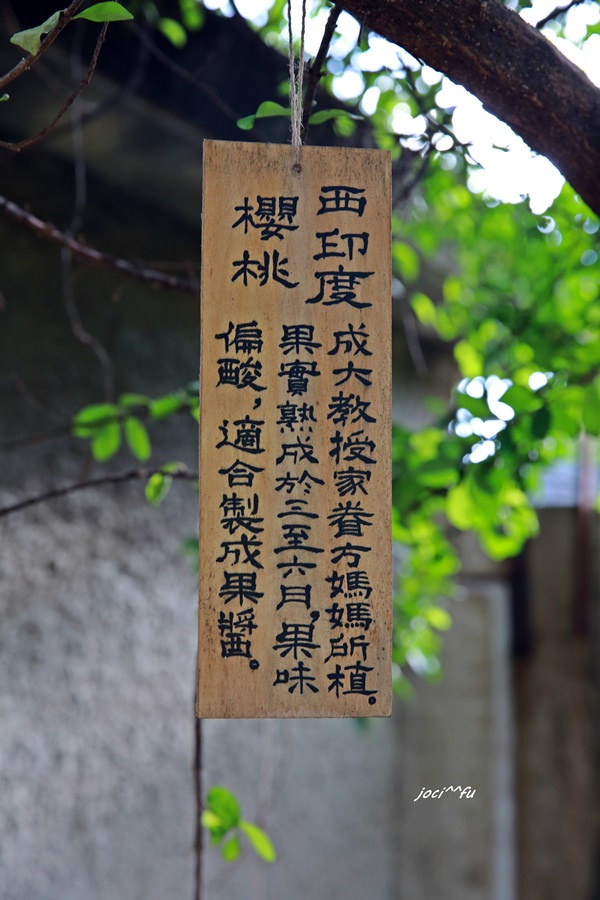 西印度
櫻桃
成大教授家眷方媽媽所植。
果實熟成於三至六月，果味
偏酸，適合製成果醬。
joci^^fu